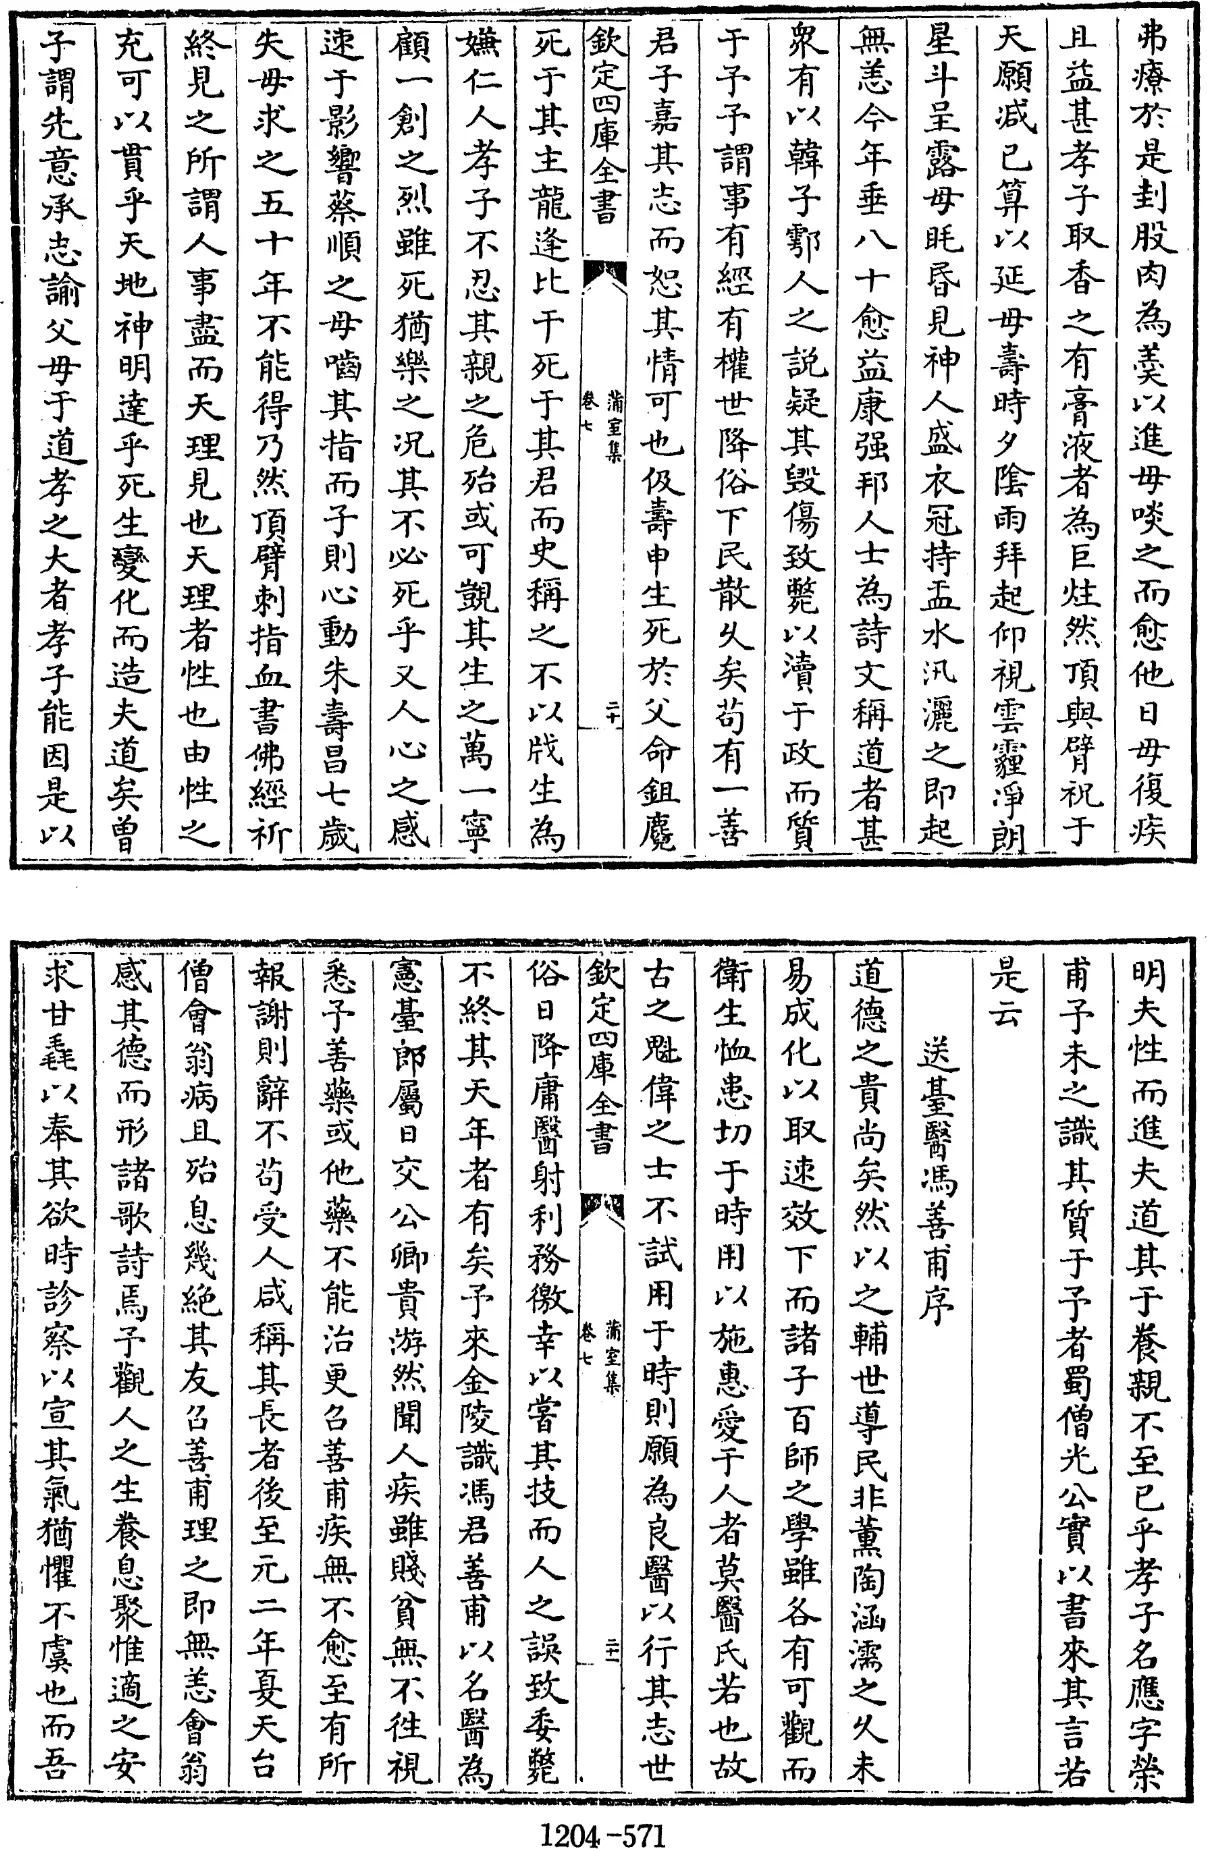 弗療於是刲股肉為羮以進母啖之而愈他日母復疾
且益甚孝子取香之有膏液者為巨炷然頂與臂祝于
天願减已算以延母壽時夕陰雨拜起仰視雲霾淨朗
星斗呈露母眊昏見神人盛衣冠持盂水汛灑之即起
無恙今年垂八十愈益康强邦人士為詩文稱道者甚
衆有以韓子鄠人之説疑其毁傷致斃以瀆于政而質
于予予謂事有經有權世降俗下民散久矣苟有一善
君子嘉其志而恕其情可也伋壽申生死於父命鉏麑
欽定四庫全書
蒲室集
卷七
二十
死于其主龍逄比干死于其君而史稱之不以戕生為
嫌仁人孝子不忍其親之危殆或可覬其生之萬一寧
顧一創之烈雖死猶樂之况其不必死乎又人心之感
速于影響蔡順之母嚙其指而子則心動朱壽昌七歲
失母求之五十年不能得乃然頂臂刺指血書佛經祈
終見之所謂人事盡而天理見也天理者性也由性之
充可以貫乎天地神明達乎死生變化而造夫道矣曾
子謂先意承志諭父母于道孝之大者孝子能因是以
明夫性而進夫道其于養親不至已乎孝子名應字榮
甫予未之識其質于予者蜀僧光公實以書來其言若
是云
送臺醫馮善甫序
道德之貴尚矣然以之輔世導民非薰陶涵濡之久未
易成化以取速效下而諸子百師之學雖各有可觀而
衛生恤患切于時用以施惠愛于人者莫醫氏若也故
古之魁偉之士不試用于時則願為良醫以行其志世
欽定四庫全書
蒲室集
卷七
二十一
俗日降庸醫射利務徼幸以嘗其技而人之誤致委斃
不終其天年者有矣予來金陵識馮君善甫以名醫為
憲臺郎屬日交公卿貴游然聞人疾雖賤貧無不徃視
悉予善藥或他藥不能治更召善甫疾無不愈至有所
報謝則辭不苟受人咸稱其長者後至元二年夏天台
僧會翁病且殆息幾絶其友召善甫理之即無恙會翁
感其德而形諸歌詩焉予觀人之生養息聚惟適之安
求甘毳以奉其欲時診察以宣其氣猶懼不虞也而吾
1204-571